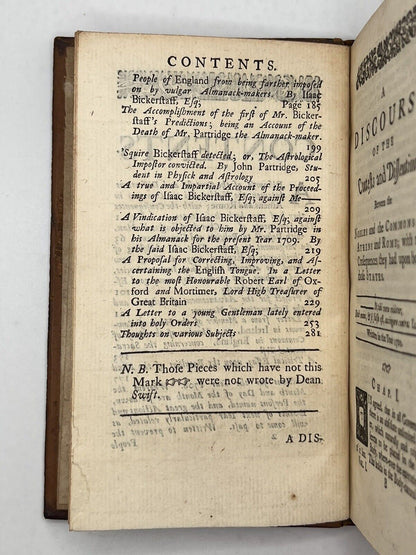 CONTENTS.
People of England from being farther imposed
on by vulgar Almanack-makers. By Isaac
Bickerstaff, Esq; Page 185
The Accomplishment of the first of Mr. Bicker-
staff's Predictions; being an Account of the
Death of Mr. Partridge the Almanack-maker.
199
'Squire Bickerstaff detected; or, The Astrological
Impostor convicted. By John Partridge, Stu-
dent in Physick and Astrology 205
A true and impartial Account of the Proceed-
ings of Isaac Bickerstaff, Esq; against Me——
209
A Vindication of Isaac Bickerstaff, Esq; against
what is objected to him by Mr. Partridge in
his Almanack for the present Year 1709. By
the said Isaac Bickerstaff, Esq; 219
A Proposal for Correcting, Improving, and As-
certaining the English Tongue. In a Letter
to the most Honourable Robert Earl of Ox-
ford and Mortimer, Lord High Treasurer of
Great Britain 229
A Letter to a young Gentleman lately entered
into holy Orders 253
Thoughts on various Subjects 281
N. B. Those Pieces which have not this
Mark were not wrote by Dean
Swift.
2 A DIS-
A
DISCOURS
OF THE
Contests and Dissension
Between the
NOBLES and the COMMONS
ATHENS and ROME; with
Consequences they had upon bo
those STATES.
Written in the Year 1701
CHAP. I.